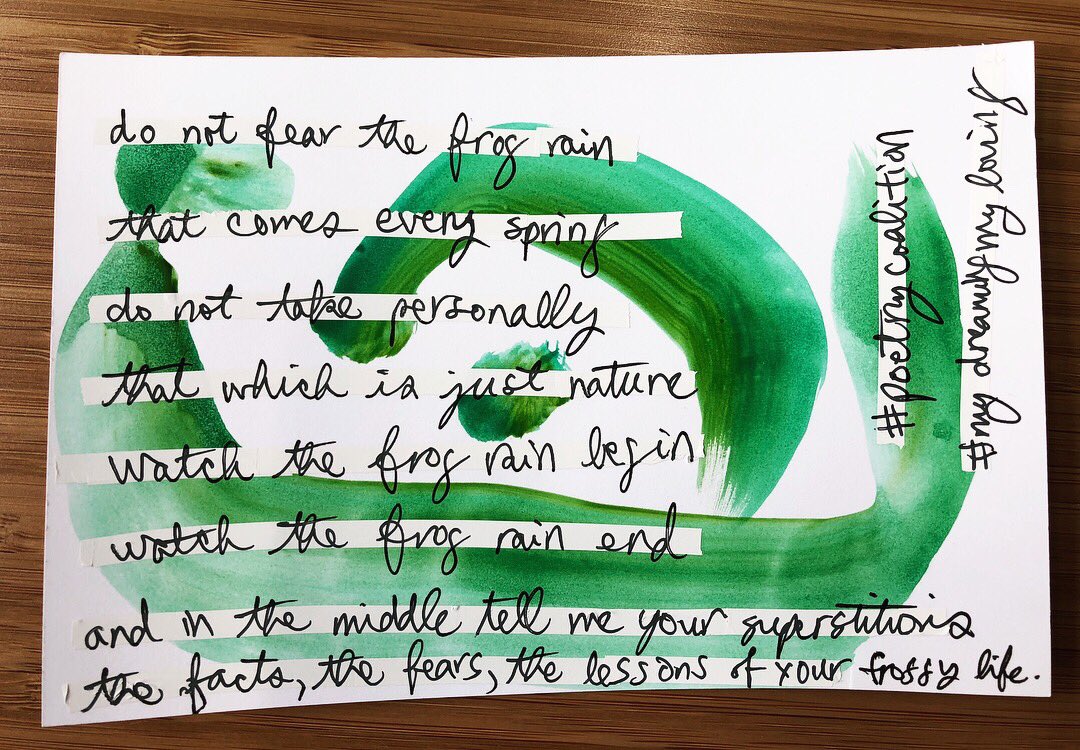 do not fear the frog rain
that comes every spring
do not take personally
that which is just nature
watch the frog rain begin
watch the frog rain end
and in the middle tell me your superstitions
the facts, the fears, the lessons of your froggy life.
#poetrycoalition
#mydreamingmyloving